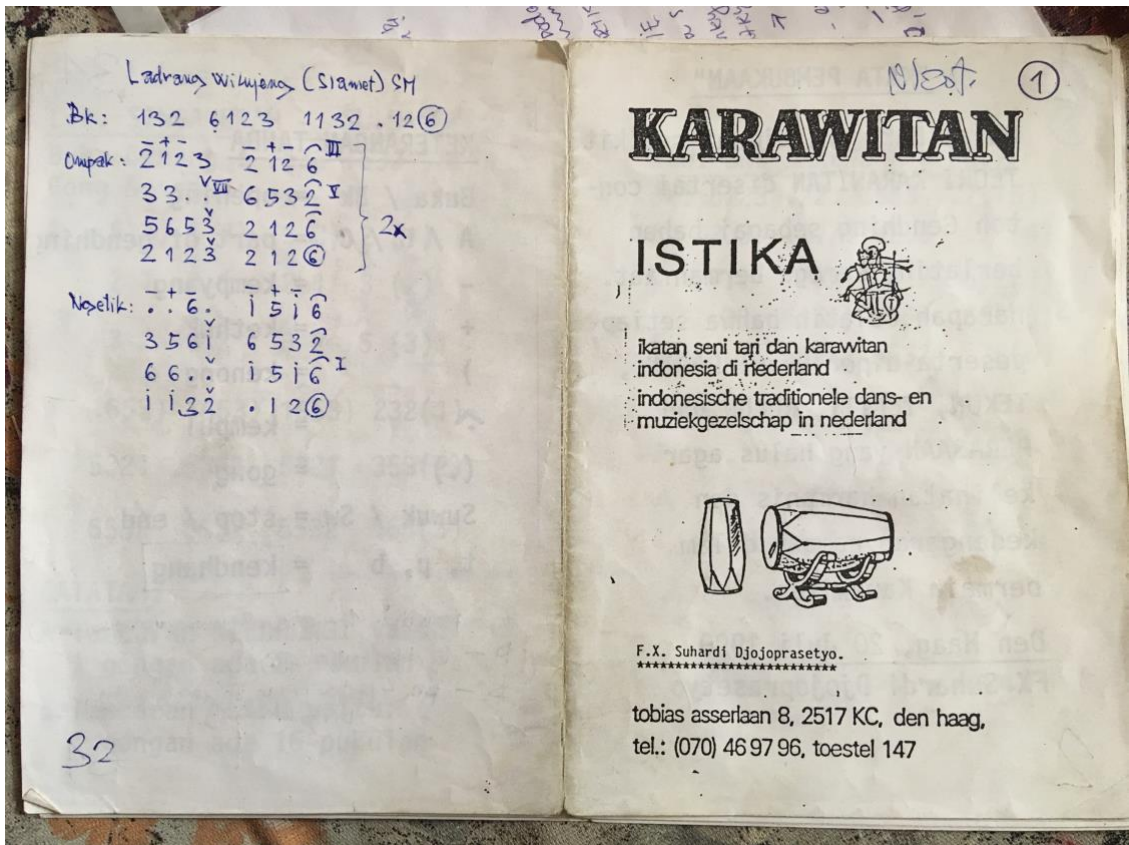 Ladrang Wilujeng (Slamet) SM
Bk: 132 6123 1132 .126
Ompak: 2123 2126 III
33 VII 6532 V
5653 2126 2x
2123 2126
Ngelik: . . 6 . i 5 i 6
3 5 6 i 6 5 3 2
6 6 . . i 5 i 6 I
i i 3 2 . 1 2 6
32
1
KARAWITAN
ISTIKA
ikatan seni tari dan karawitan
indonesia di nederland
indonesische traditionele dans- en
muziekgezelschap in nederland
F.X. Suhardi Djojoprasetyo.
**************************
tobias asserlaan 8, 2517 KC, den haag,
tel.: (070) 46 97 96, toestel 147